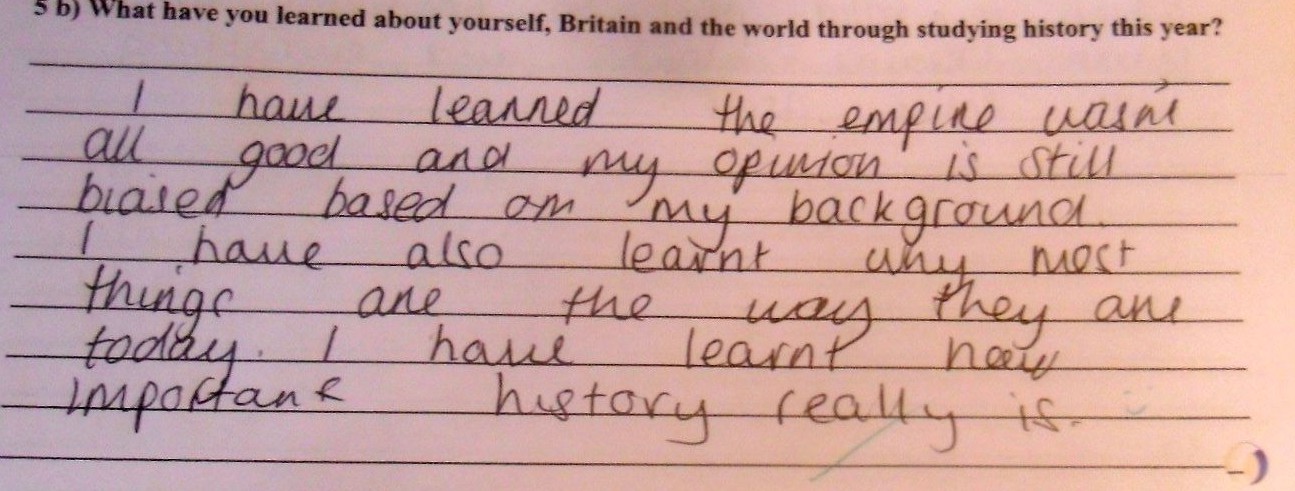 5 b) What have you learned about yourself, Britain and the world through studying history this year?
I have learned the empire wasnt
all good and my opinion is still
biased based on my background.
I have also learnt why most
things are the way they are
today. I have learnt how
important history really is.